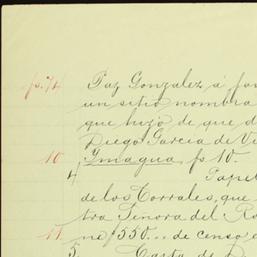 fs. 71 Paz Gonzalez á fa
un sitio nombra
que hizo de que d
Diego Garcia de Ve
10 Ymagua, fs 10.
4 Papel
de los Corrales, que
tra Señora del Ro
11 ne $550... de censo e
5 Carta de D